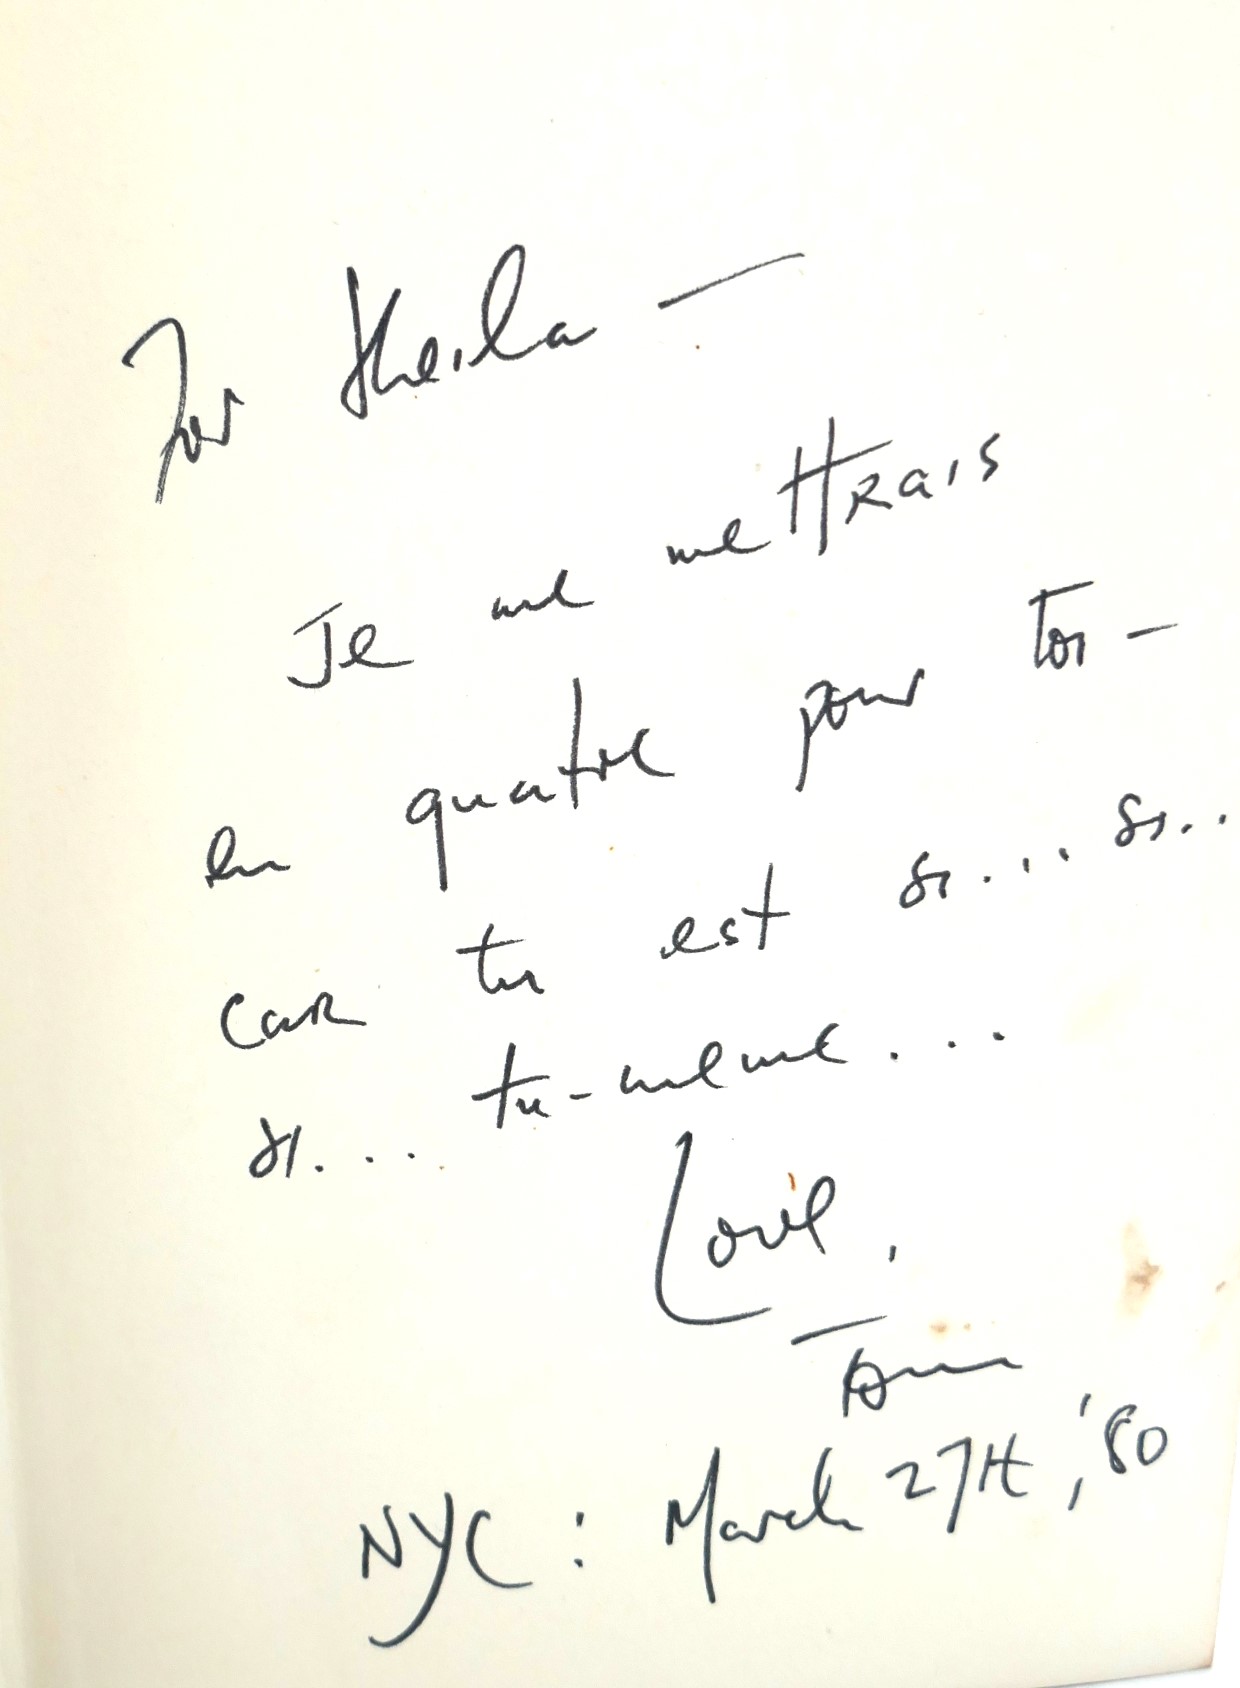 For Sheila —
Je me mettrais
en quatre pour toi —
car tu est si.... si..
si.... tu-meme....
Love,
Tom
NYC: March 27th, '80